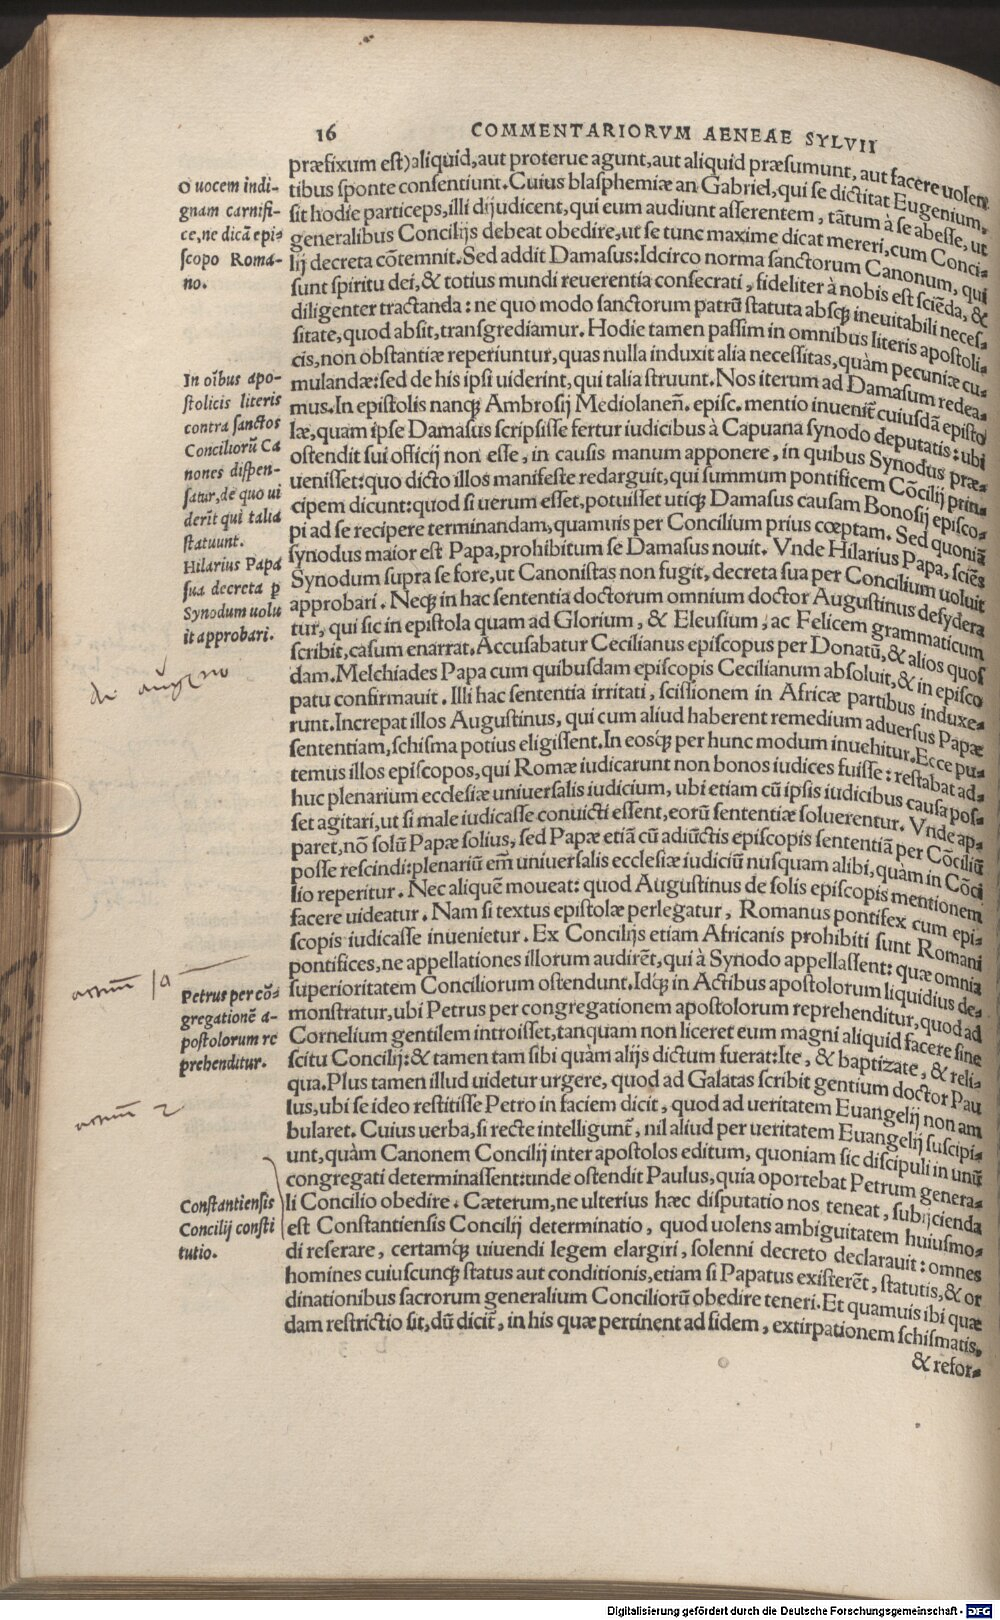 16 COMMENTARIORVM AENEAE SYLVII
præfixum est) aliquid, aut proterue agunt, aut aliquid præsumunt, aut facere uolen⸗
tibus sponte consentiunt. Cuius blasphemiæ an Gabriel, qui se dictitat Eugenium,
sit hodie particeps, illi dijudicent, qui eum audiunt asserentem, tātum à se abesse, ut
generalibus Concilijs debeat obedire, ut se tunc maxime dicat mereri, cum Conci⸗
lij decreta cōtemnit. Sed addit Damasus: Idcirco norma sanctorum Canonum, qui
sunt spiritu dei, & totius mundi reuerentia consecrati, fideliter à nobis est sciēda, &
diligenter tractanda: ne quo modo sanctorum patrū statuta absq; ineuitabili neces⸗
sitate, quod absit, transgrediamur. Hodie tamen passim in omnibus literis apostoli⸗
cis, non obstantiæ reperiuntur, quas nulla induxit alia necessitas, quàm pecuniæ cu⸗
mulandæ: sed de his ipsi uiderint, qui talia struunt. Nos iterum ad Damasum redea⸗
mus. In epistolis nanq; Ambrosij Mediolaneñ. episc. mentio inuenit̄ cuiusdā episto
læ, quam ipse Damasus scripsisse fertur iudicibus à Capuana synodo deputatis: ubi
ostendit sui officij non esse, in causis manum apponere, in quibus Synodus præ⸗
uenisset: quo dicto illos manifeste redarguit, qui summum pontificem Cōcilij prin⸗
cipem dicunt: quod si uerum esset, potuisset utiq; Damasus causam Bonosij episco⸗
pi ad se recipere terminandam, quamuis per Concilium prius cœptam. Sed quoniā
synodus maior est Papa, prohibitum se Damasus nouit. Vnde Hilarius Papa, sciēs
Synodum supra se fore, ut Canonistas non fugit, decreta sua per Concilium uoluit
approbari. Neq; in hac sententia doctorum omnium doctor Augustinus desydera
tur, qui sic in epistola quam ad Glorium, & Eleusium, ac Felicem grammaticum
scribit, casum enarrat. Accusabatur Cecilianus episcopus per Donatū, & alios quos
dam. Melchiades Papa cum quibusdam episcopis Cecilianum absoluit, & in episco
patu confirmauit. Illi hac sententia irritati, scissionem in Africæ partibus induxe⸗
runt. Increpat illos Augustinus, qui cum aliud haberent remedium aduersus Papæ
sententiam, schisma potius eligissent. In eosq; per hunc modum inuehitur. Ecce pu⸗
temus illos episcopos, qui Romæ iudicarunt non bonos iudices fuisse: restabat ad⸗
huc plenarium ecclesiæ uniuersalis iudicium, ubi etiam cū ipsis iudicibus causa pos⸗
set agitari, ut si male iudicasse conuicti essent, eorū sententiæ soluerentur. Vnde ap⸗
paret, nō solū Papæ solius, sed Papæ etiā cū adiūctis episcopis sententiā per Cōciliū
posse rescindi: plenariū em̄ uniuersalis ecclesiæ iudiciū nusquam alibi, quàm in Cōci
lio reperitur. Nec aliquē moueat: quod Augustinus de solis episcopis mentionem
facere uideatur. Nam si textus epistolæ perlegatur, Romanus pontifex cum epi⸗
scopis iudicasse inuenietur. Ex Concilijs etiam Africanis prohibiti sunt Romani
pontifices, ne appellationes illorum audirēt, qui à Synodo appellassent: quæ omnia
superioritatem Conciliorum ostendunt. Idq; in Actibus apostolorum liquidius de⸗
monstratur, ubi Petrus per congregationem apostolorum reprehenditur, quod ad
Cornelium gentilem introisset, tanquam non liceret eum magni aliquid facere sine
scitu Concilij: & tamen tam sibi quàm alijs dictum fuerat: Ite, & baptizate, & reli⸗
qua. Plus tamen illud uidetur urgere, quod ad Galatas scribit gentium doctor Pau
lus, ubi se ideo restitisse Petro in faciem dicit, quod ad ueritatem Euangelij non am
bularet. Cuius uerba, si recte intelligunt̄, nil aliud per ueritatem Euangelij suscipi⸗
unt, quàm Canonem Concilij inter apostolos editum, quoniam sic discipuli in unū
congregati determinassent: unde ostendit Paulus, quia oportebat Petrum genera⸗
li Concilio obedire. Cæterum, ne ulterius hæc disputatio nos teneat, subijcienda
est Constantiensis Concilij determinatio, quod uolens ambiguitatem huiusmo⸗
di reserare, certamq́; uiuendi legem elargiri, solenni decreto declarauit: omnes
homines cuiuscunq; status aut conditionis, etiam si Papatus existerēt, statutis, & or
dinationibus sacrorum generalium Conciliorū obedire teneri. Et quamuis ibi quæ
dam restrictio sit, dū dicit̄, in his quæ pertinent ad fidem, extirpationem schismatis,
& refor⸗
O uocem indi⸗
gnam carnifi⸗
ce, ne dicā epi⸗
scopo Roma⸗
no.
In oībus apo⸗
stolicis literis
contra sanctos
Conciliorū Ca
nones dispen⸗
satur, de quo ui
derīt qui talia
statuunt.
Hilarius Papa
sua decreta ꝑ
Synodum uolu
it approbari.
Petrus per cō⸗
gregationē a⸗
postolorum re
prehenditur.
Constantiensis
Concilij consti
tutio.
Digitalisierung gefördert durch die Deutsche Forschungsgemeinschaft - DFG